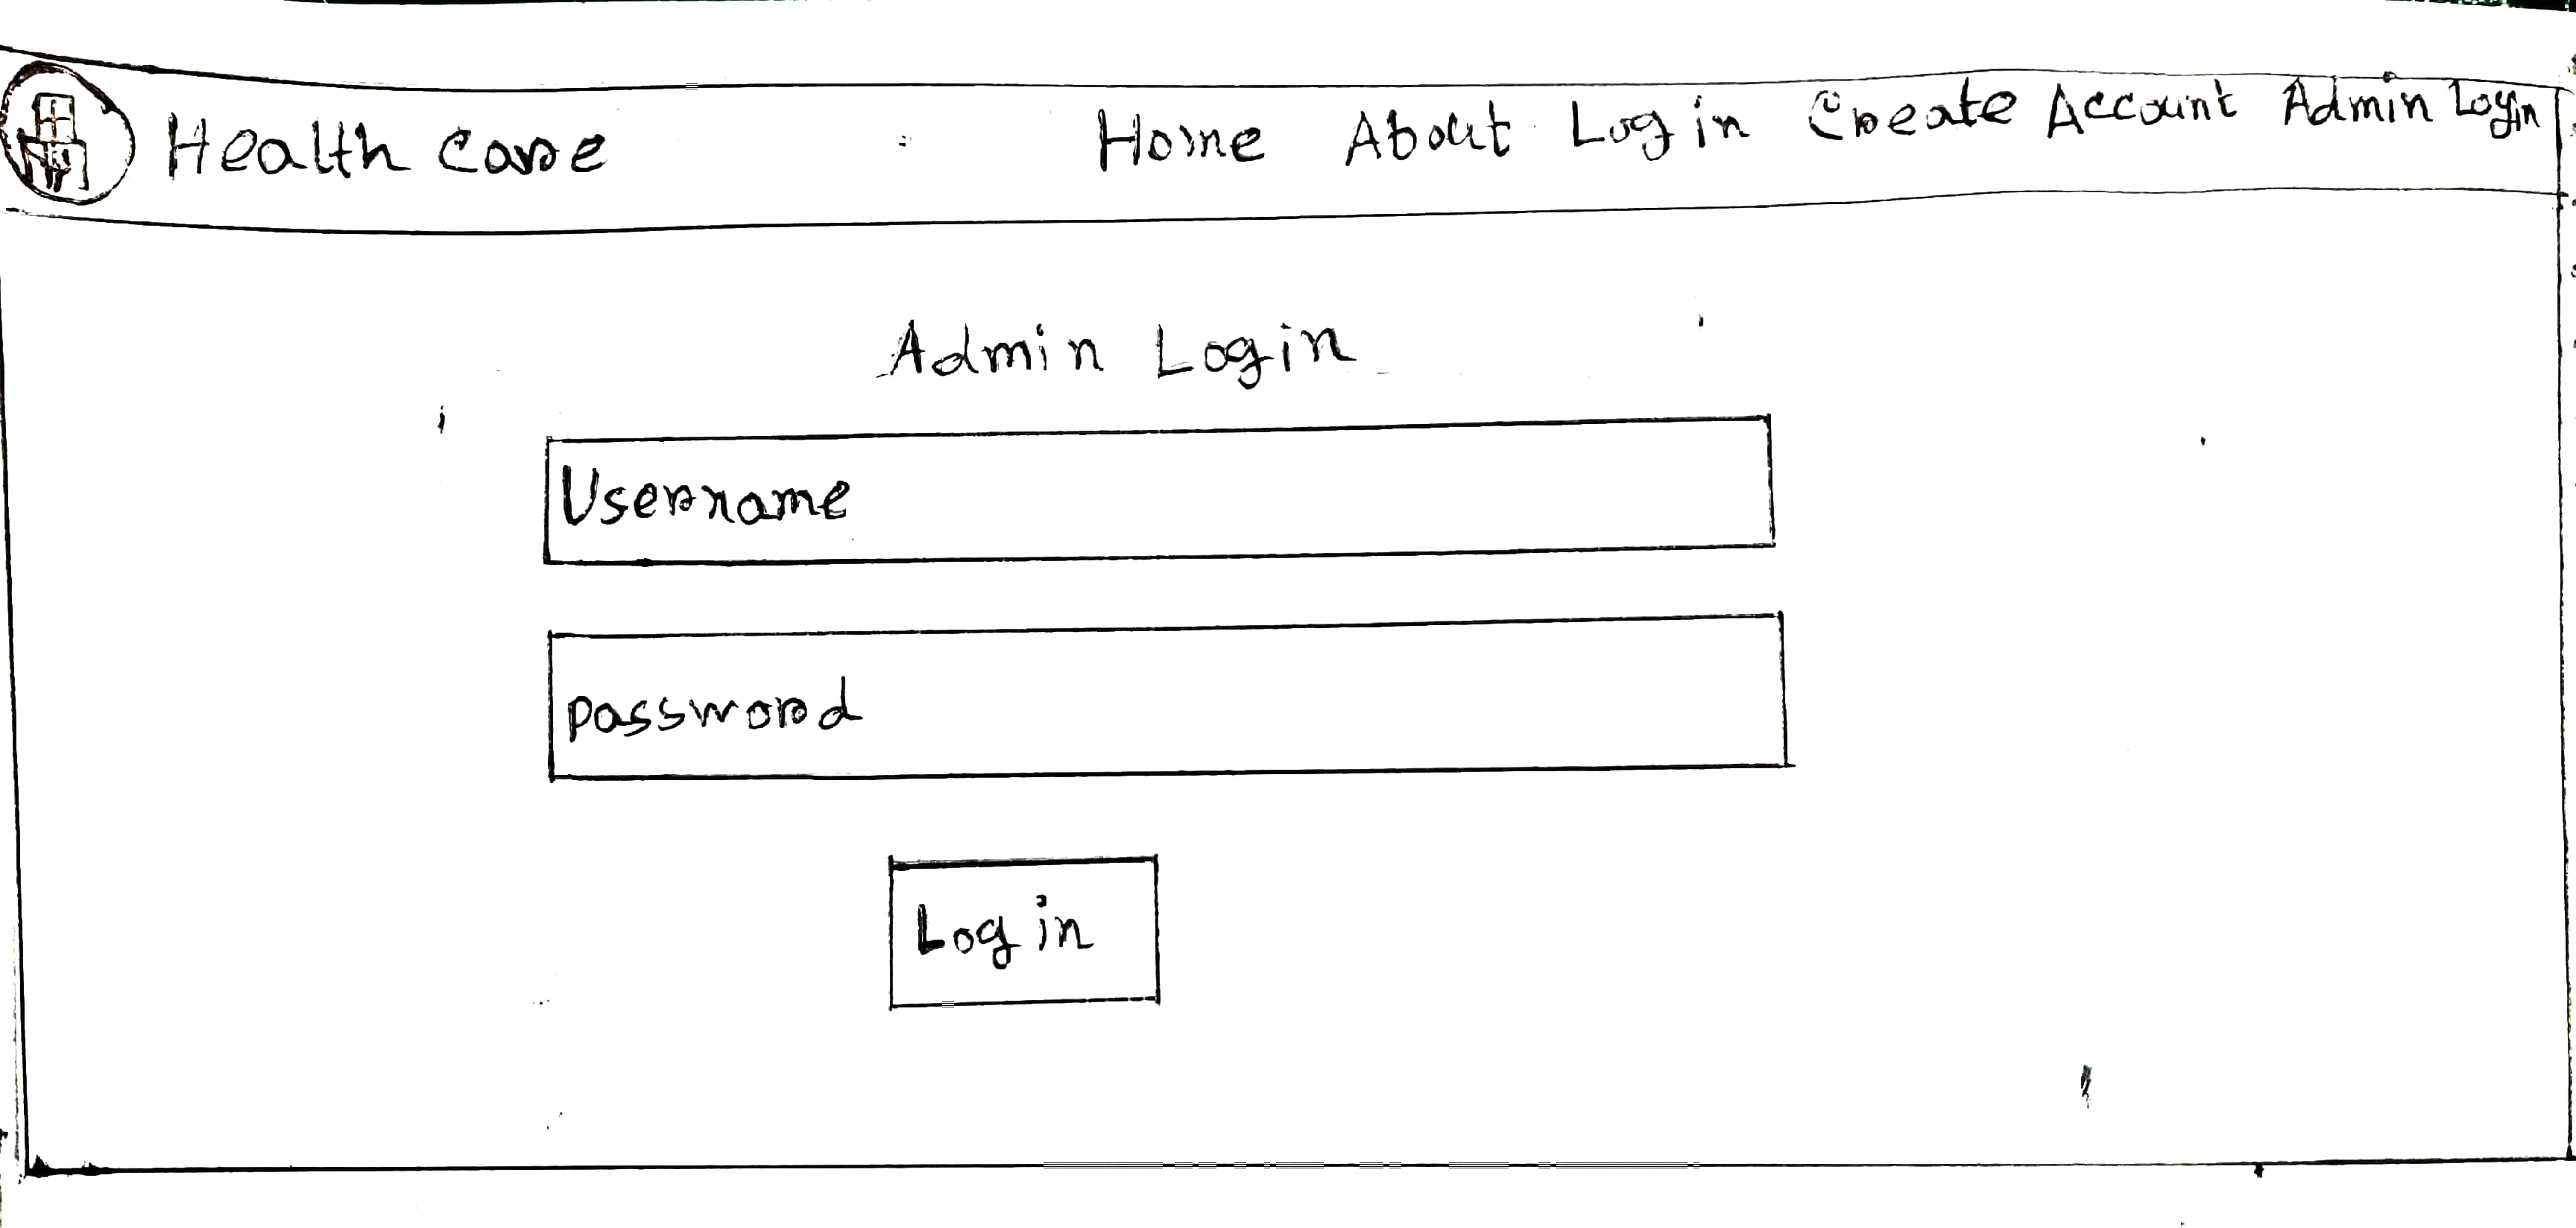 Health care Home About Login Create Account Admin Login
Admin Login
Username
password
Login